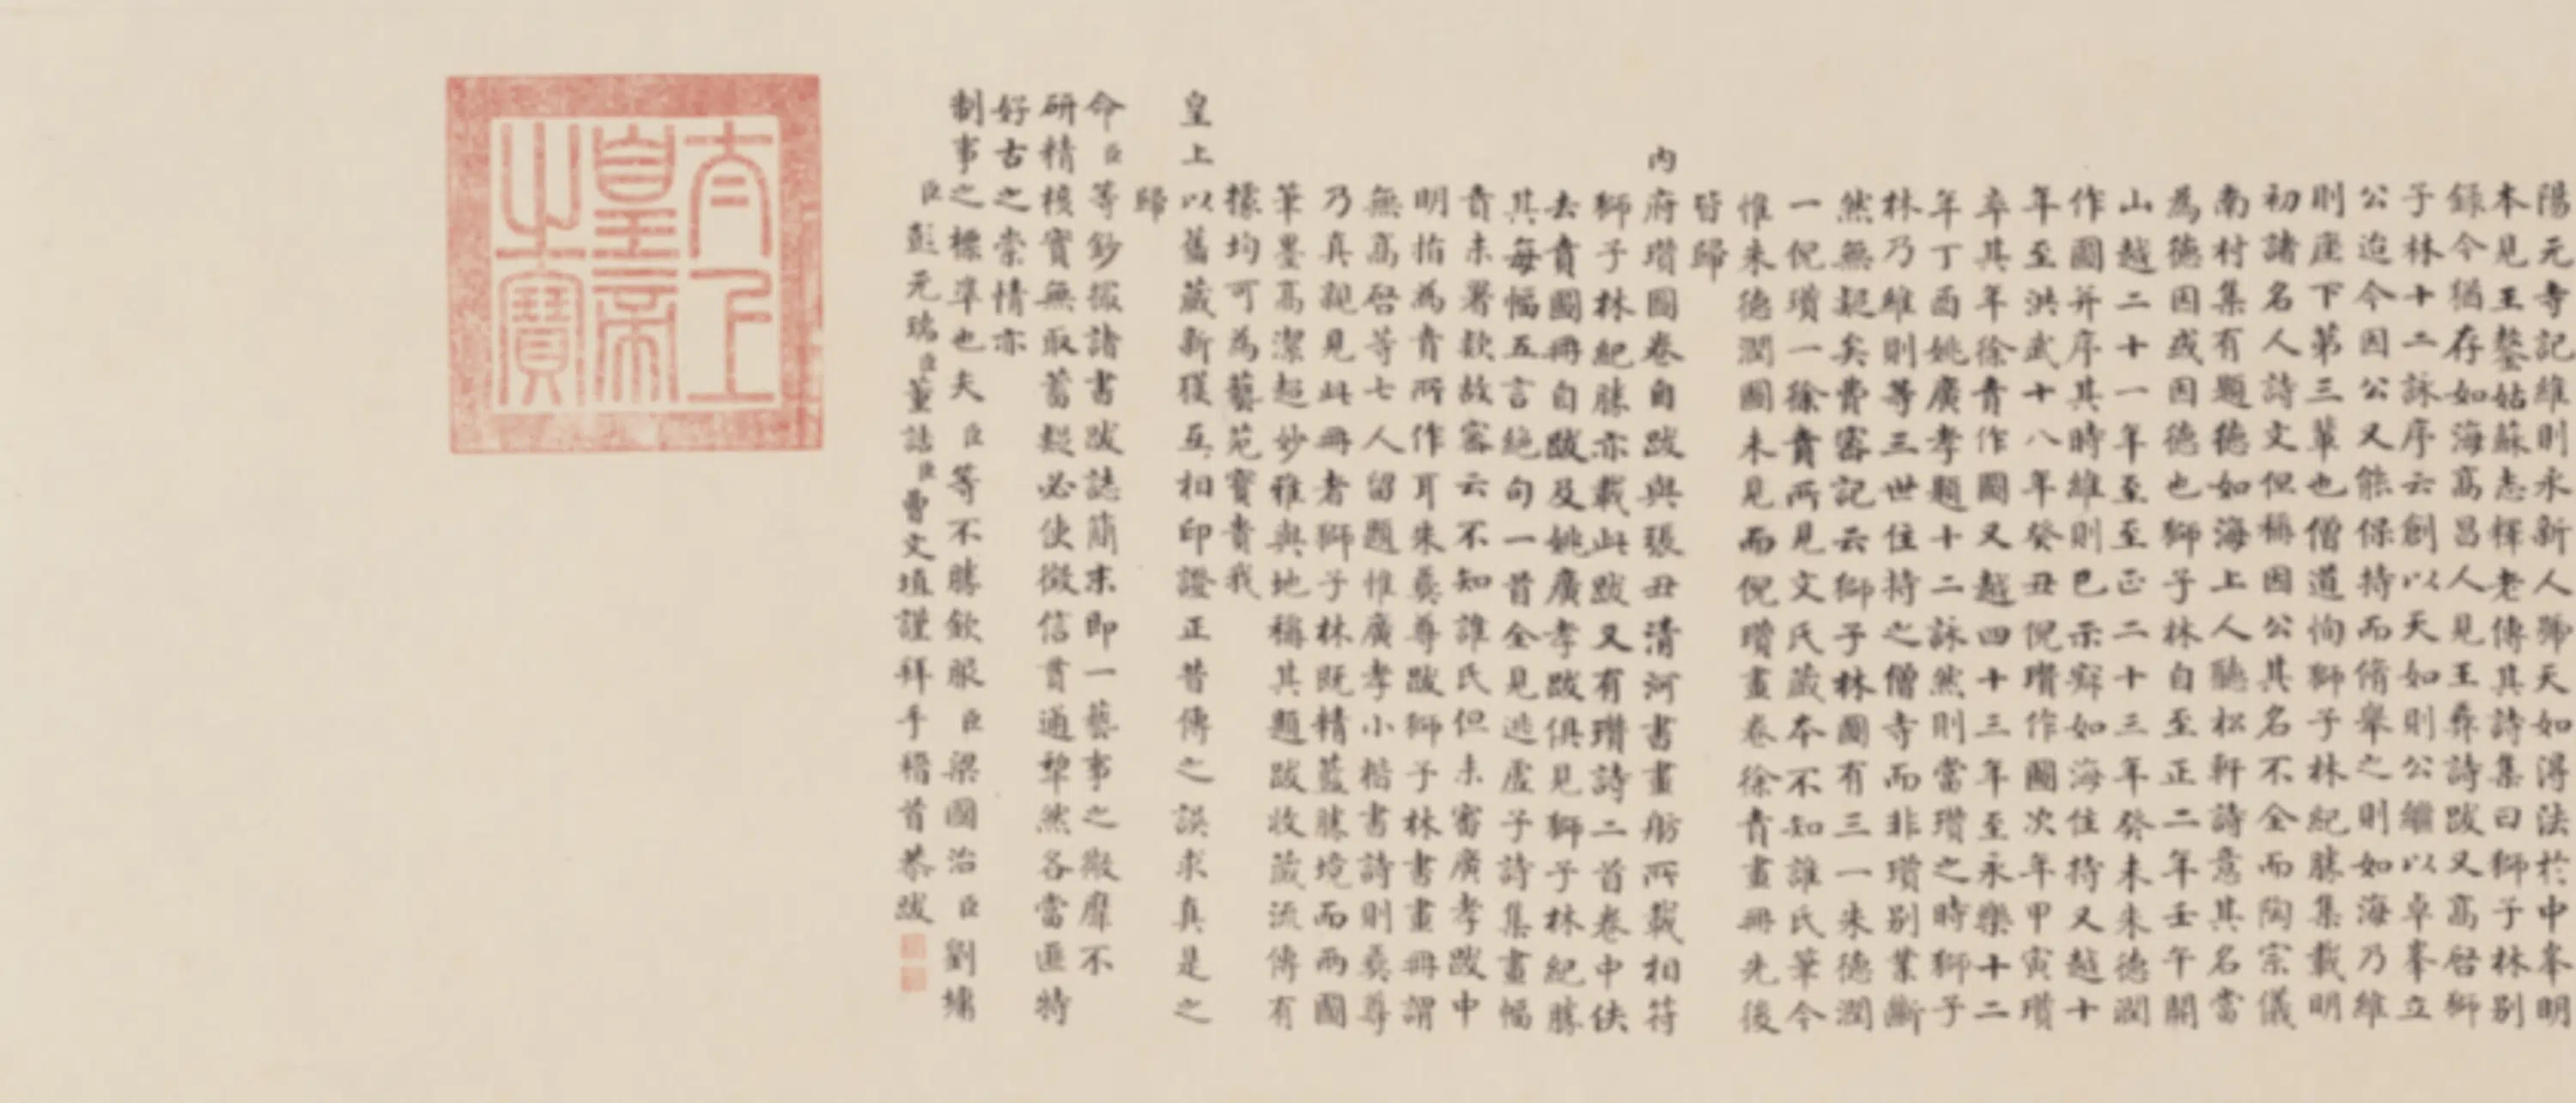 陽元寺記維則永新人號天如得法於中峯明
本見王鏊姑蘇志釋老傳其詩集曰獅子林别
錄今猶存如海高昌人見王彞詩跋又高啓獅
子林十二詠序云創以天如則公繼以卓峯立
公迨今因公又能保持而脩舉之則如海乃維
則座下第三輩也僧道恂獅子林紀勝集載明
初諸名人詩文但稱因公其名不全而陶宗儀
南村集有題德如海上人聽松軒詩意其名當
為德因或因德也獅子林自至正二年壬午開
山越二十一年至至正二十三年癸未朱德潤
作圖并序其時維則已示寂如海住持又越十
年至洪武十八年癸丑倪瓚作圖次年甲寅瓚
卒其年徐賁作圖又越四十三年至永樂十二
年丁酉姚廣孝題十二詠然則當瓚之時獅子
林乃維則等三世住持之僧寺而非瓚别業斷
然無疑矣費審記云獅子林圖有三一朱德潤
一倪瓚一徐賁所見文氏藏本不知誰氏筆今
惟朱德潤圖未見而倪瓚畫卷徐賁畫冊先後
皆歸
内府瓚圖卷自跋與張丑清河書畫舫所載相符
獅子林紀勝亦載此跋又有瓚詩二首卷中佚
去賁圖冊自跋及姚廣孝跋俱見獅子林紀勝
其每幅五言絶句一首全見逃虛子詩集畫幅
賁未署款故審云不知誰氏但未審廣孝跋中
明指為賁所作耳朱彞尊跋獅子林書畫冊謂
無高啓等七人留題惟廣孝小楷書詩則彞尊
乃真親見此冊者獅子林既精藍勝境而兩圖
筆墨高潔超妙雅與地稱其題跋收藏流傳有
據均可為藝苑寶貴我
皇上以舊藏新獲互相印證正昔傳之誤求真是之
歸
命臣等鈔撮諸書跋誌簡末即一藝事之微靡不
研精覈實無取蓄疑必使徵信貫通犂然各當匪特
好古之崇情亦
制事之標準也夫臣等不勝欽服臣梁國治臣劉墉
臣彭元瑞臣董誥臣曹文埴謹拜手稽首恭跋
太上
皇帝
之寶